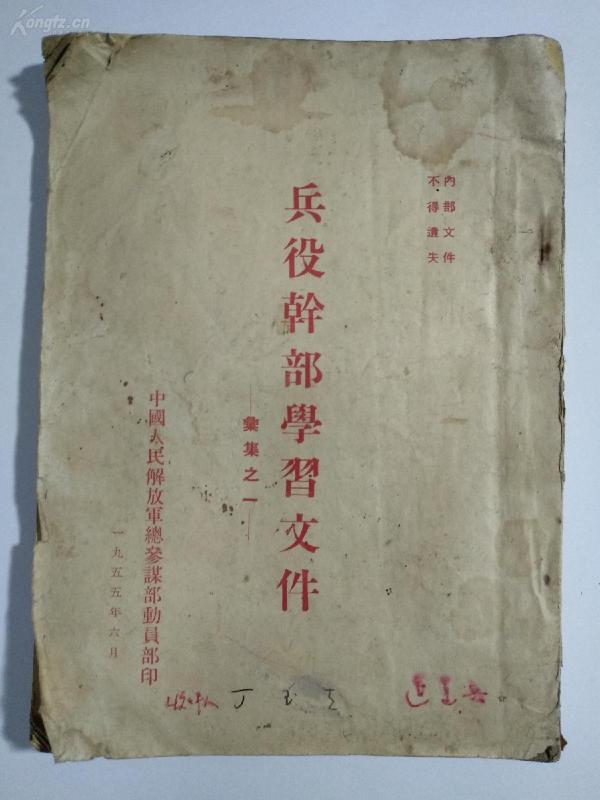 Kongfz.cn
內部文件
不得遺失
兵役幹部學習文件
彙集之一
中國人民解放軍總參謀部動員部印
一九五五年六月
丁玉